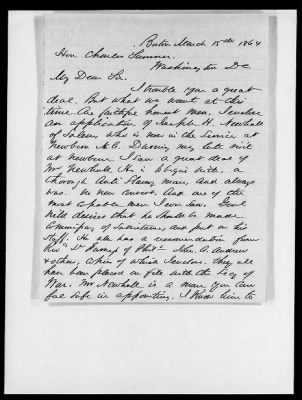 Boston March 15th 1864
Hon Charles Sumner
Washington DC
My Dear Sir.
I trouble you a great
deal. But what we want at this
time Are faithful honest men. I enclose
an application of Joseph H. Newhall
of Salem, who is now in the Service at
Newbern N.C. During my late visit
at Newbern I saw a great deal of
Mr Newhall. He is to begin with, a
thorough Anti Slavery man, and always
was. He now and one of the
most capable men I ever saw. Genl
Wild desires that he should be made
Commissary of Subsistence and put on his
Staff. He also has a recommendation from
Dr of Phila John A. Andrew
& others, copies of which I enclose. they all
have been placed on file with the Secy of
War. Mr Newhall is a man you can
feel safe in appointing. I know him to